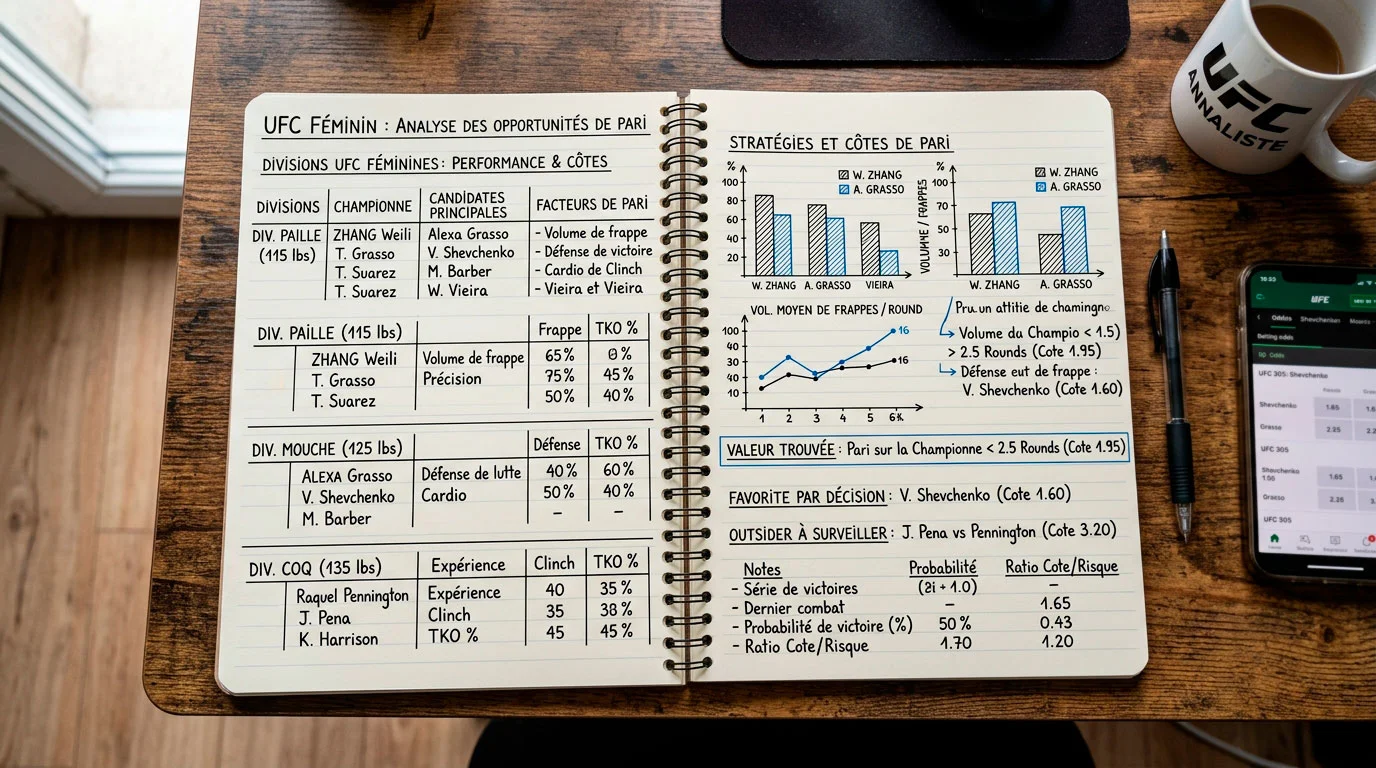 UFC FÉMININ : ANALYSE DES OPPORTUNITÉS DE PARI
DIVISIONS UFC FÉMININES: PERFORMANCE & CÔTES
DIVISIONS CHAMPIONNE CANDIDATES PRINCIPALES FACTEURS DE PARI
DIV. PAILLE (115 lbs) ZHANG Weili Alexa Grasso - Volume de frappe
T. Grasso V. Shevchenko - Défense de victoire
T. Suarez M. Barber - Cardio de Clinch
T. Suarez W. Vieira - Vieira et Vieira
DIV. PAILLE (115 lbs) Frappe TKO %
ZHANG Weili Volume de frappe 65% 0%
T. Grasso Précision 75% 45%
T. Suarez 50% 40%
DIV. MOUCHE (125 lbs) Défense TKO %
ALEXA Grasso Défense de lutte 40% 60%
V. Shevchenko Cardio 50% 40%
M. Barber – –
DIV. COQ (135 lbs) Expérience Clinch TKO %
Raquel Pennington Expérience 40 35%
J. Pena Clinch 35 38%
K. Harrison TKO % 45 45%
STRATÉGIES ET CÔTES DE PARI
%
100
80
60
40
20
W. ZHANG
A. GRASSO
W. ZHANG A. GRASSO VIEIRA
%
VOLUME / FRAPPES
100
70
50
30
W. ZHANG
A. GRASSO
W. ZHANG A. GRASSO
VOL. MOYEN DE FRAPPES / ROUND
100
40
30
40
10
16
16
1 2 3 4 5
Volume du Champio < 1.5)
> 2.5 Rounds (Cote 1.95)
Défense eut de frappe :
V. Shevchenko (Cote 1.60)
VALEUR TROUVÉE : Pari sur la Championne < 2.5 Rounds (Cote 1.95)
FAVORITE PAR DÉCISION : V. Shevchenko (Cote 1.60)
OUTSIDER À SURVEILLER : J. Pena vs Pennington (Cote 3.20)
Notes Probabilité Ratio Cote/Risque
- Série de victoires –
- Dernier combat – 1.65
- Probabilité de victoire (%) 50% 0.43
- Ratio Cote/Risque 1.70 1.20
UFC
ANNALISTE
UFC 305: Shevchenko
Shevchenko 1.65
Grasso 2.25
UFC 305
1.65
Grasso 2.26
UFC 305